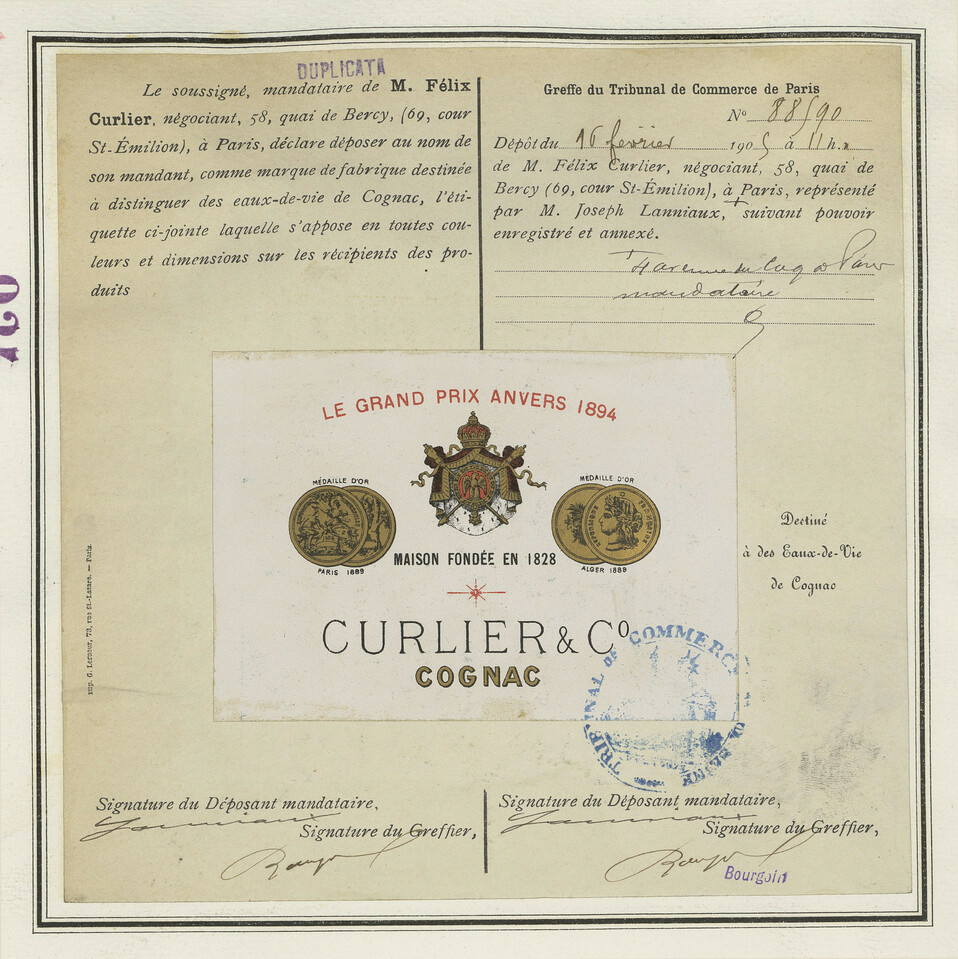 DUPLICATA
Le soussigné, mandataire de M. Félix
Curlier, négociant, 58, quai de Bercy, (69, cour
St-Émilion), à Paris, déclare déposer au nom de
son mandant, comme marque de fabrique destinée
à distinguer des eaux-de-vie de Cognac, l'éti-
quette ci-jointe laquelle s'appose en toutes cou-
leurs et dimensions sur les récipients des pro-
duits
Greffe du Tribunal de Commerce de Paris
No 88590
Dépôt du 16 février 1905 à 11 h.
de M. Félix Curlier, négociant, 58, quai de
Bercy (69, cour St-Émilion), à Paris, représenté
par M. Joseph Lanniaux, suivant pouvoir
enregistré et annexé.
mandataire
LE GRAND PRIX ANVERS 1894
MÉDAILLE D'OR
PARIS 1889
MÉDAILLE D'OR
ALGER 1889
MAISON FONDÉE EN 1828
CURLIER & Co
COGNAC
Destiné
à des Eaux-de-Vie
de Cognac
Imp. G. Lernatur, 73, rue St-Lazare. — Paris.
TRIBUNAL DE COMMERCE
Signature du Déposant mandataire,
Lanniaux
Signature du Greffier,
Signature du Déposant mandataire,
Lanniaux
Signature du Greffier,
Bourgoin